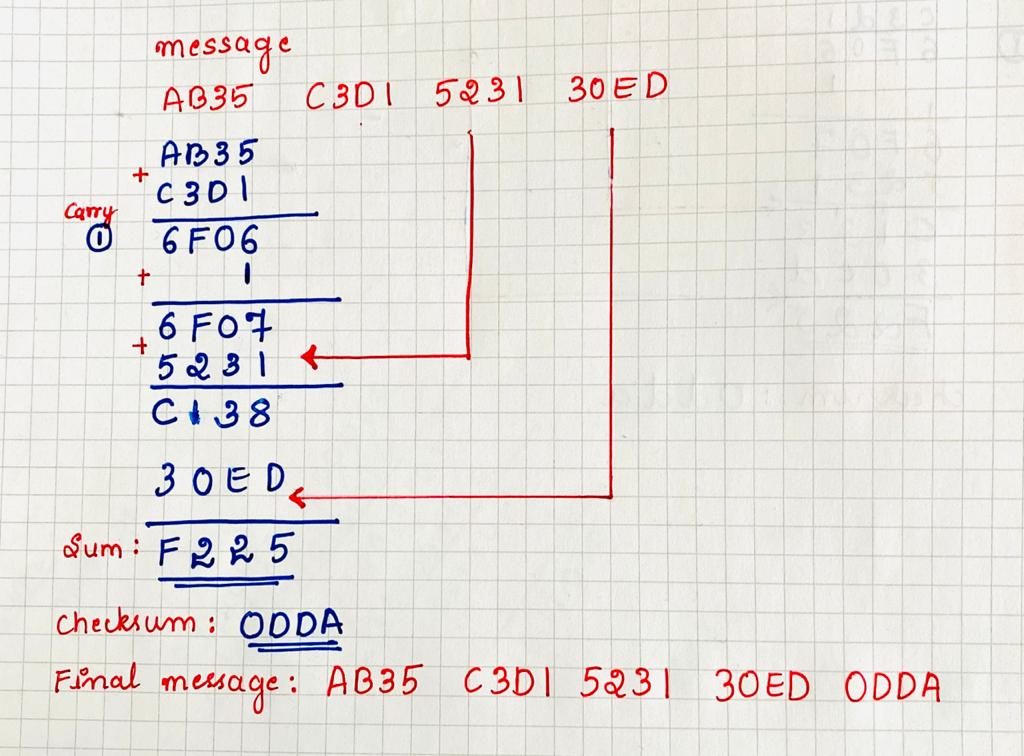 message
AB35 C3D1 5231 30ED
AB35
+
C3D1
Carry
① 6F06
+ 1
6F07
+
5231
C138
30ED
Sum: F225
Checksum: 0DDA
Final message: AB35 C3D1 5231 30ED 0DDA